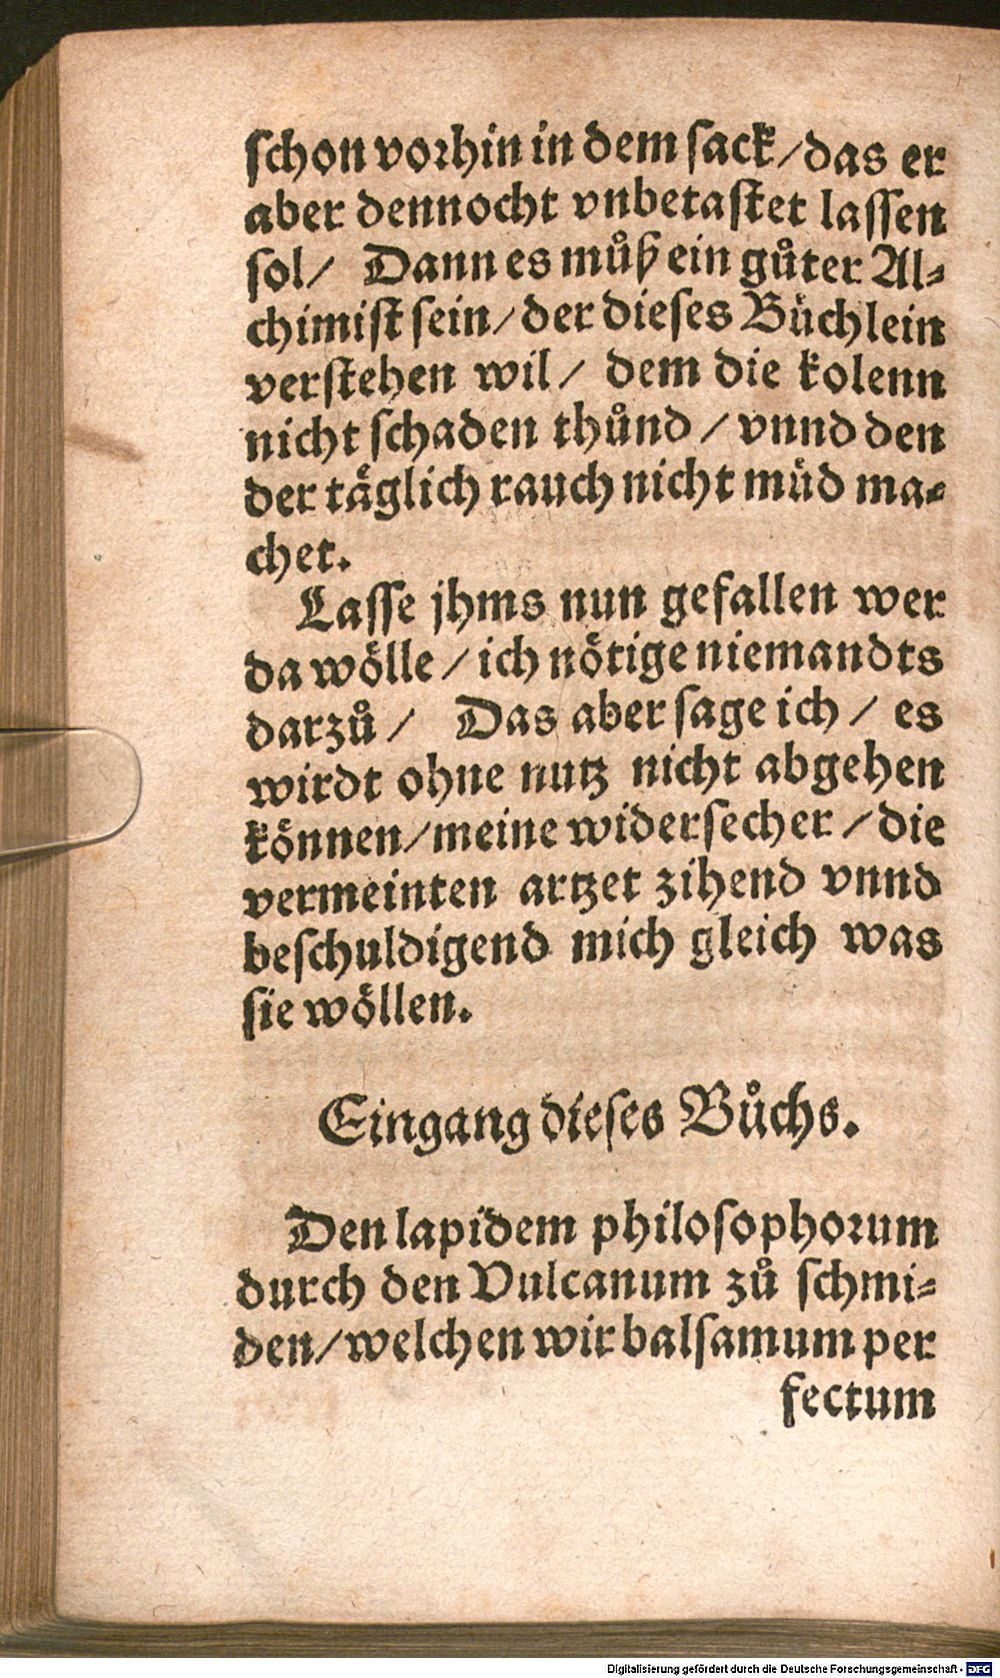 schon vorhin in dem sack/das er
aber dennocht vnbetastet lassen
sol/ Dann es můß ein gůter Al-
chimist sein/der dieses Büchlein
verstehen wil/ dem die kolenn
nicht schaden thůnd/vnnd den
der täglich rauch nicht müd ma-
chet.
Lasse jhms nun gefallen wer
da wölle/ich nötige niemandts
darzů/ Das aber sage ich/ es
wirdt ohne nutz nicht abgehen
können/meine widersecher/die
vermeinten artzet zihend vnnd
beschuldigend mich gleich was
sie wöllen.
Eingang dieses Bůchs.
Den lapidem philosophorum
durch den Vulcanum zů schmi-
den/welchen wir balsamum per
fectum
Digitalisierung gefördert durch die Deutsche Forschungsgemeinschaft - DFG